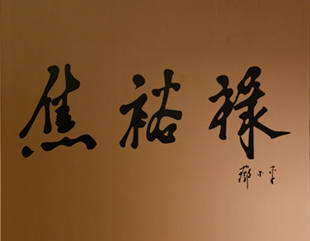 焦裕禄
邓小平